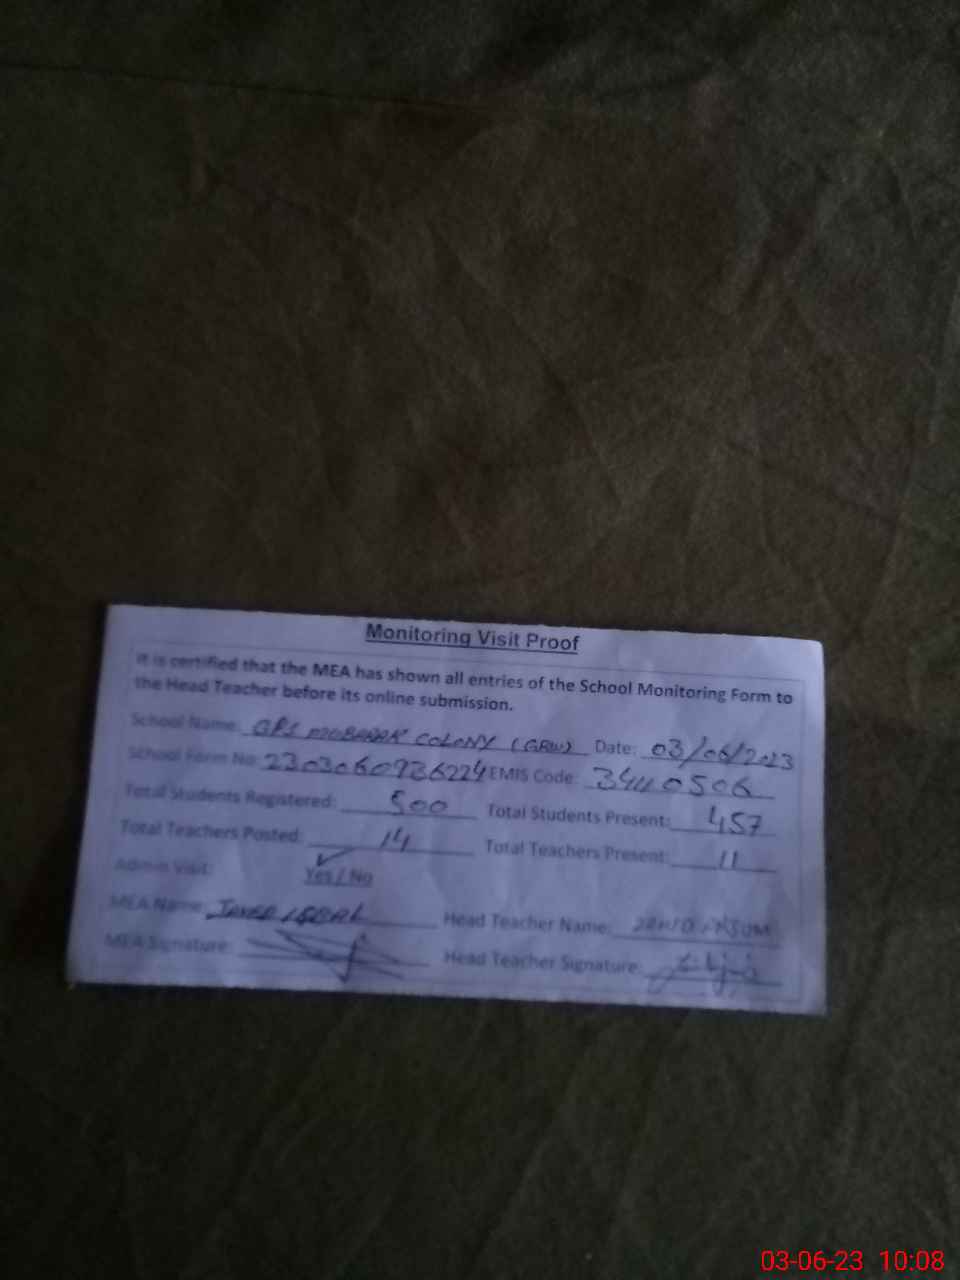 Monitoring Visit Proof
It is certified that the MEA has shown all entries of the School Monitoring Form to
the Head Teacher before its online submission.
School Name: GPS MUBARAK COLONY (GRW) Date: 03/06/2023
School Form No: 2303060936224 EMIS Code: 34110506
Total Students Registered: 500 Total Students Present: 457
Total Teachers Posted: 14 Total Teachers Present: 11
Admin Visit: Yes / No
MEA Name: JAVED IQBAL Head Teacher Name:
MEA Signature: Head Teacher Signature:
03-06-23 10:08